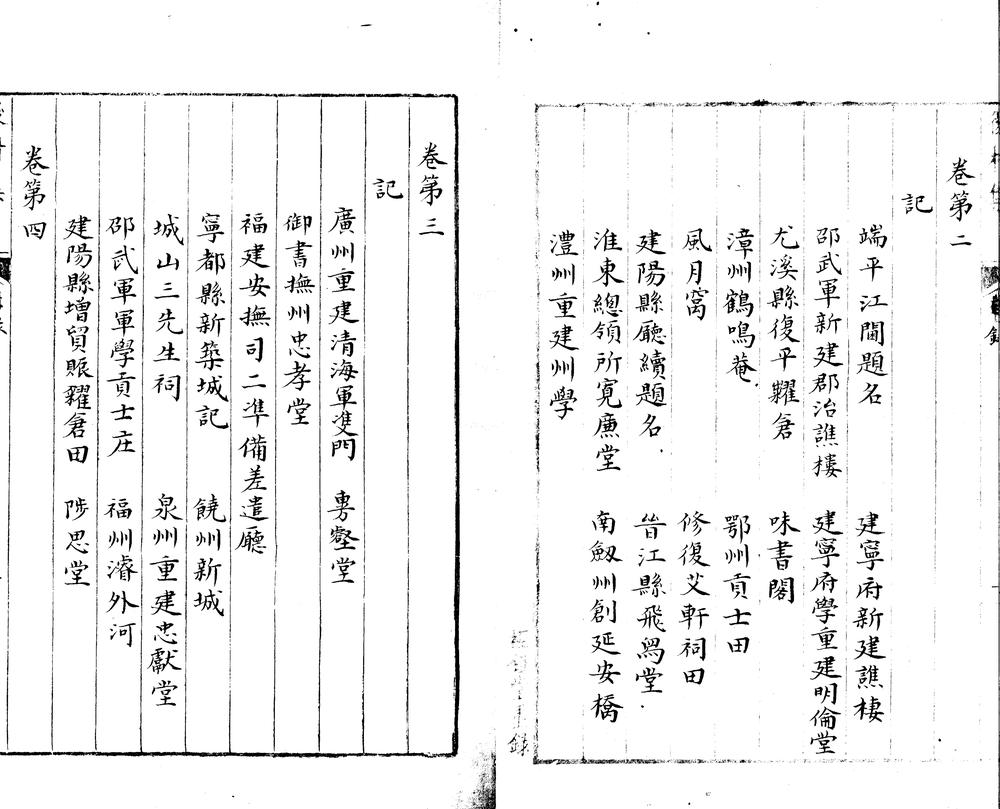 卷第二
記
端平江閫題名　建寧府新建譙樓
邵武軍新建郡治譙樓　建寧府學重建明倫堂
尤溪縣復平糶倉　味書閣
漳州鶴鳴菴　鄂州貢士田
風月窩　修復艾軒祠田
建陽縣廳續題名　晉江縣飛鳧堂
淮東總領所寬廉堂　南劔州創延安橋
澧州重建州學
卷第三
記
廣州重建清海軍雙門　專壑堂
御書撫州忠孝堂
福建安撫司二準備差遣廳
寧都縣新築城記　饒州新城
城山三先生祠　泉州重建忠獻堂
邵武軍軍學貢士庄　福州濬外河
建陽縣增貿賑糶倉田　陟思堂
卷第四